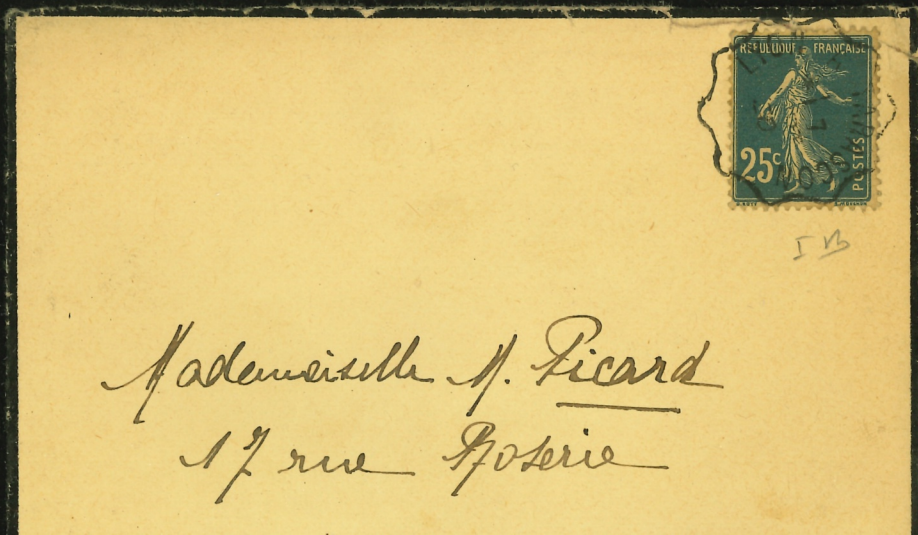 RÉPUBLIQUE FRANÇAISE
25c
POSTES
I B
Mademoiselle M. Picard
17 rue Roserie